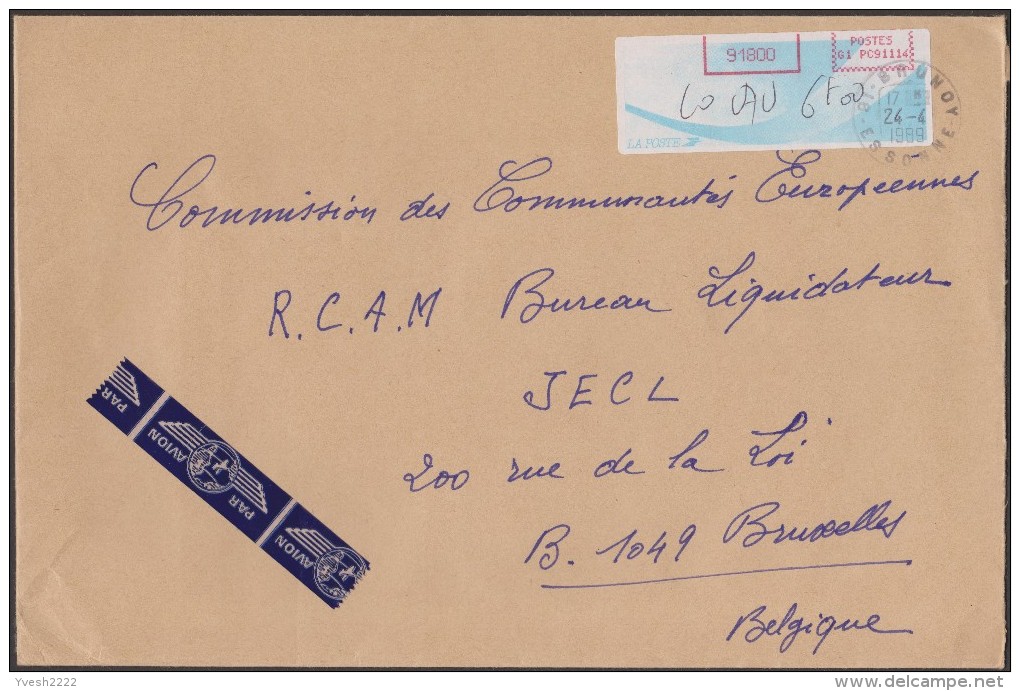 91800
POSTES
G1 PC91114
6F00
LA POSTE
91-BRUNOY
17 H
24-4
1989
ESSONNE
Commission des Communautés Européennes
R.C.A.M Bureau Liquidateur
JECL
200 rue de la Loi
B. 1049 Bruxelles
Belgique
PAR
AVION
PAR
AVION
Yvesh2222
delcampe.net